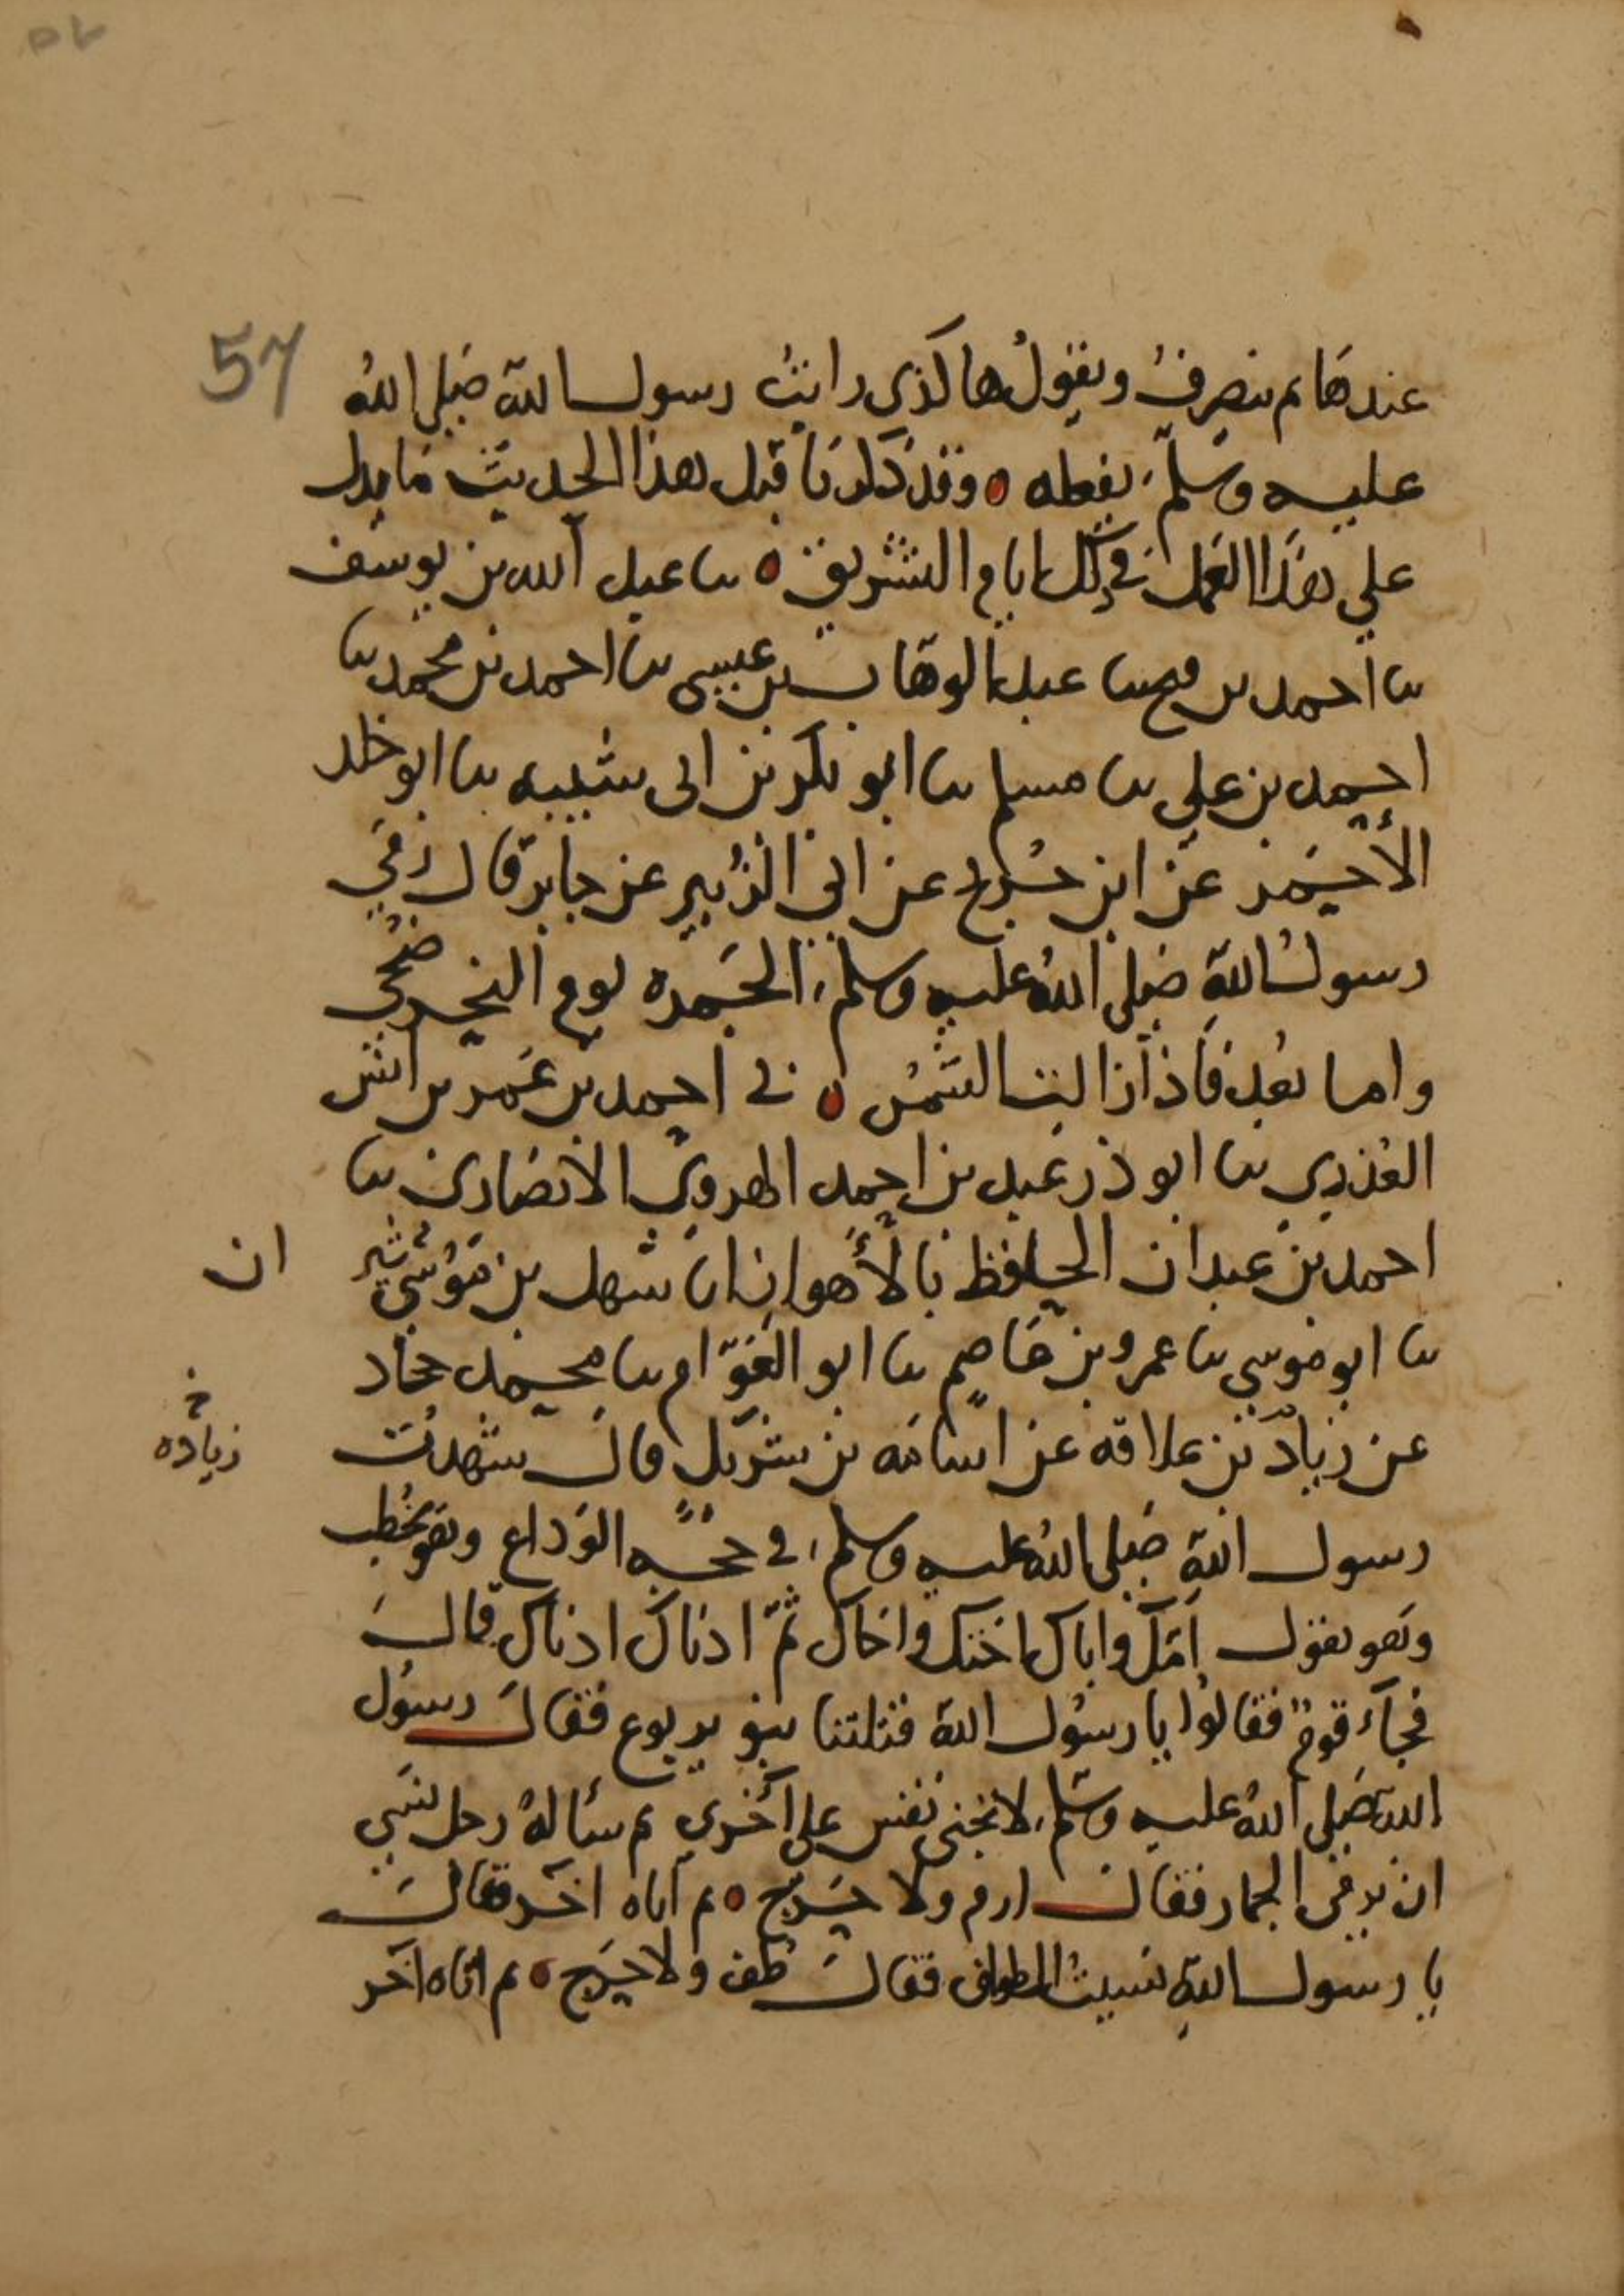 57
عندها ثم ينصرف ويقول هاكذى رايت رسول الله صلى الله
عليه وسلم يفعله وقد ذكرنا قبل هذا الحديث ما يدل
على هذا العمل في تلك ايام التشريق ىا عبد الله بن يوسف
ىا احمد بن فتح ىا عبد الوهاب بن عيسى ىا احمد بن محمد ىا
احمد بن علي ىا مسلم ىا ابو بكر بن ابى شيبه ىا ابو خلد
الأحمر عن ابن جريج عن ابي الزبير عن جابر قال رمي
رسول الله صلى الله عليه وسلم الجمره يوم النحر ضحى
واما بعد فاذا زالت الشمس ني احمد بن عمر بن انس
العذري ىا ابو ذر عبد بن احمد الهروي الانصارى ىا
احمد بن عبدان الحافظ بالأهواز انا سهل بن موسى
ان
ىا ابو موسى ىا عمرو بن عاصم ىا ابو العوام ىا محمد جحاد
عن زياد بن علاقه عن اسامه بن شريك قال شهدت
خ
زياده
رسول الله صلى الله عليه وسلم في حجه الوداع وهو يخطب
وهو يقول امك واباك اختك واخاك ثم ادناك ادناك قال
فجآء قوم فقالوا يا رسول الله قتلتنا بنو يربوع فقال رسول
الله صلى الله عليه وسلم لا تجنى نفس على اخري ثم سأله رجل نسي
ان يرمى الجمار فقال ارم ولا حرج ثم اتاه اخر فقال
يا رسول الله نسيت الطواف فقال طف ولا حرج ثم اتاه آخر